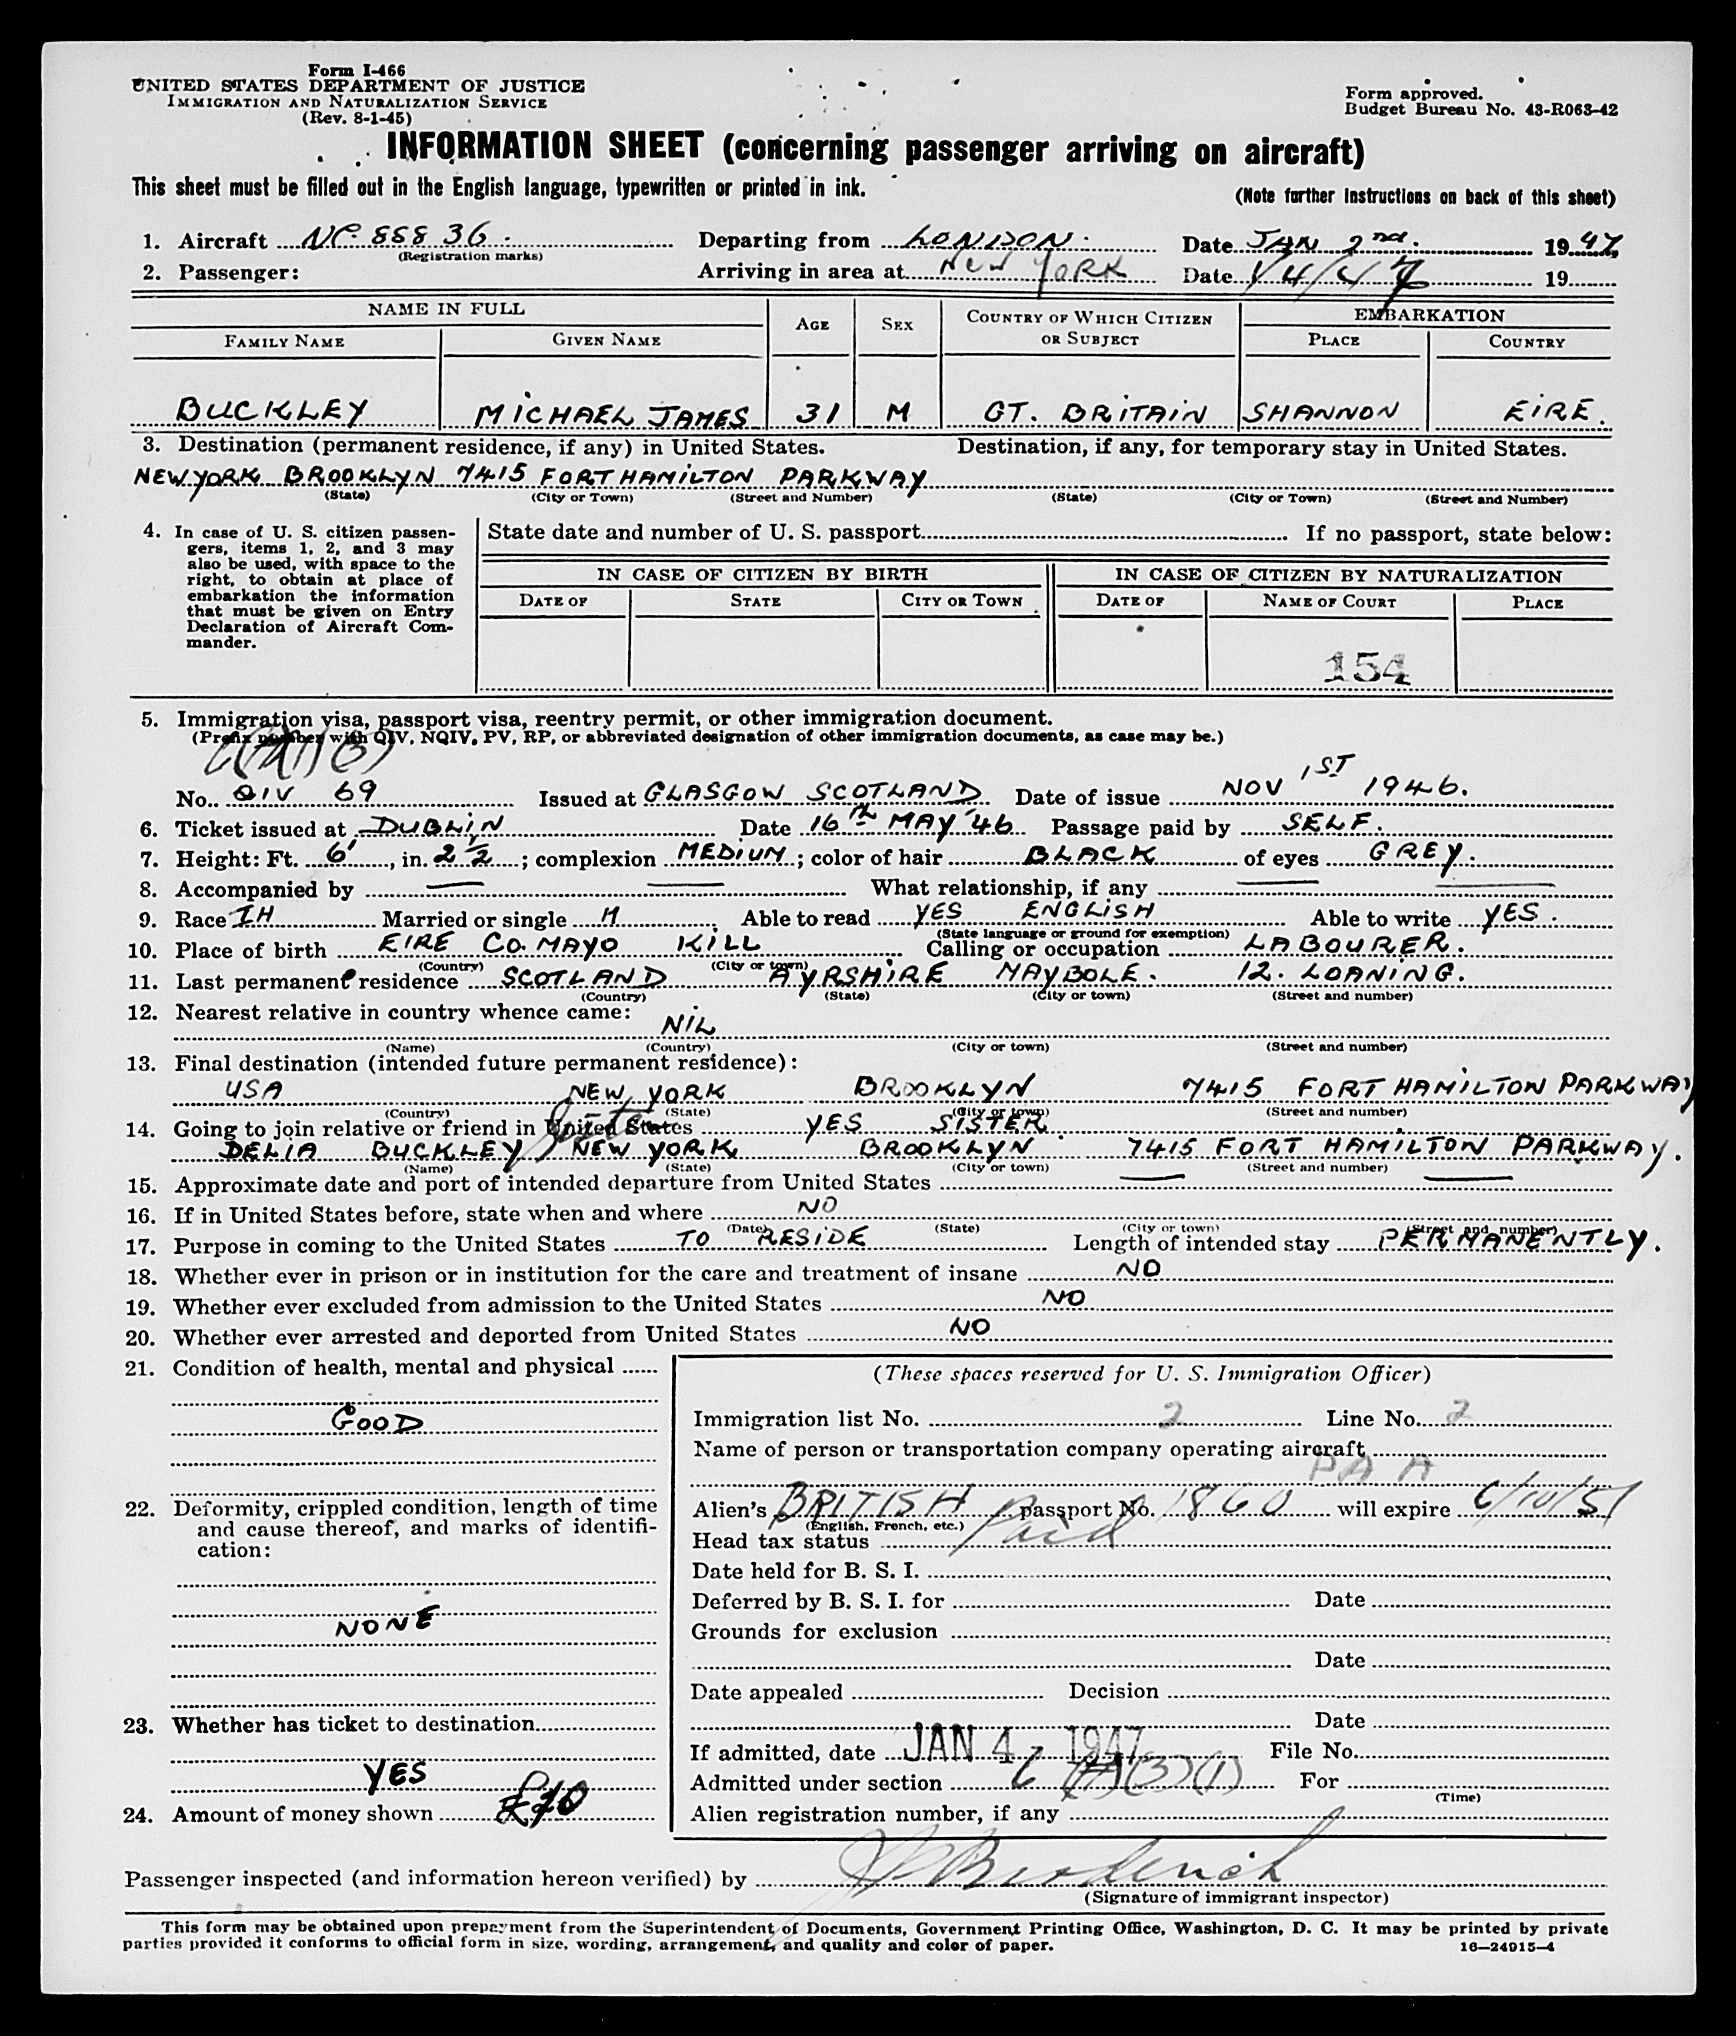 Form I-466
UNITED STATES DEPARTMENT OF JUSTICE
IMMIGRATION AND NATURALIZATION SERVICE
(Rev. 8-1-45)
Form approved.
Budget Bureau No. 43-R063-42
INFORMATION SHEET (concerning passenger arriving on aircraft)
This sheet must be filled out in the English language, typewritten or printed in ink.
(Note further instructions on back of this sheet)
1. Aircraft NC. 888 36. Departing from LONDON. Date JAN 2nd. 1947
(Registration marks)
2. Passenger: Arriving in area at NEW YORK Date 1/4/47 19
NAME IN FULL AGE SEX COUNTRY OF WHICH CITIZEN OR SUBJECT EMBARKATION
FAMILY NAME GIVEN NAME PLACE COUNTRY
BUCKLEY MICHAEL JAMES 31 M GT. BRITAIN SHANNON EIRE.
3. Destination (permanent residence, if any) in United States. Destination, if any, for temporary stay in United States.
NEW YORK BROOKLYN 7415 FORT HAMILTON PARKWAY
(State) (City or Town) (Street and Number) (State) (City or Town) (Street and Number)
4. In case of U. S. citizen passengers, items 1, 2, and 3 may also be used, with space to the right, to obtain at place of embarkation the information that must be given on Entry Declaration of Aircraft Commander.
State date and number of U. S. passport If no passport, state below:
IN CASE OF CITIZEN BY BIRTH IN CASE OF CITIZEN BY NATURALIZATION
DATE OF STATE CITY OR TOWN DATE OF NAME OF COURT PLACE
154
5. Immigration visa, passport visa, reentry permit, or other immigration document.
(Prefix number with QIV, NQIV, PV, RP, or abbreviated designation of other immigration documents, as case may be.)
No. QIV 69 Issued at GLASGOW SCOTLAND Date of issue NOV 1ST 1946.
6. Ticket issued at DUBLIN Date 16th MAY '46 Passage paid by SELF.
7. Height: Ft. 6', in. 2½; complexion MEDIUM; color of hair BLACK of eyes GREY.
8. Accompanied by — — What relationship, if any — —
9. Race IH Married or single M Able to read YES ENGLISH Able to write YES.
(State language or ground for exemption)
10. Place of birth EIRE CO. MAYO KILL Calling or occupation LABOURER.
(Country) (City or town)
11. Last permanent residence SCOTLAND AYRSHIRE MAYBOLE. 12. LOANING.
(Country) (State) (City or town) (Street and number)
12. Nearest relative in country whence came:
NIL
(Name) (Country) (City or town) (Street and number)
13. Final destination (intended future permanent residence):
USA NEW YORK BROOKLYN 7415 FORT HAMILTON PARKWAY
(Country) (State) (City or town) (Street and number)
14. Going to join relative or friend in United States YES SISTER.
DELIA BUCKLEY NEW YORK BROOKLYN 7415 FORT HAMILTON PARKWAY.
(Name) (State) (City or town) (Street and number)
15. Approximate date and port of intended departure from United States — —
16. If in United States before, state when and where NO
(Date) (State) (City or town) (Street and number)
17. Purpose in coming to the United States TO RESIDE Length of intended stay PERMANENTLY.
18. Whether ever in prison or in institution for the care and treatment of insane NO
19. Whether ever excluded from admission to the United States NO
20. Whether ever arrested and deported from United States NO
21. Condition of health, mental and physical
GOOD
22. Deformity, crippled condition, length of time and cause thereof, and marks of identification:
NONE
23. Whether has ticket to destination
YES
24. Amount of money shown
(These spaces reserved for U. S. Immigration Officer)
Immigration list No. 2 Line No. 2
Name of person or transportation company operating aircraft
PAA
Alien's BRITISH passport No. 1860 will expire 6/10/51
(English, French, etc.)
Head tax status Paid
Date held for B. S. I.
Deferred by B. S. I. for Date
Grounds for exclusion
Date
Date appealed Decision
Date
If admitted, date JAN 4 - 1947 File No.
Admitted under section 6 (A)(3)(1) For
(Time)
Alien registration number, if any
Passenger inspected (and information hereon verified) by
(Signature of immigrant inspector)
This form may be obtained upon prepayment from the Superintendent of Documents, Government Printing Office, Washington, D. C. It may be printed by private
parties provided it conforms to official form in size, wording, arrangement, and quality and color of paper.
16—24915-4